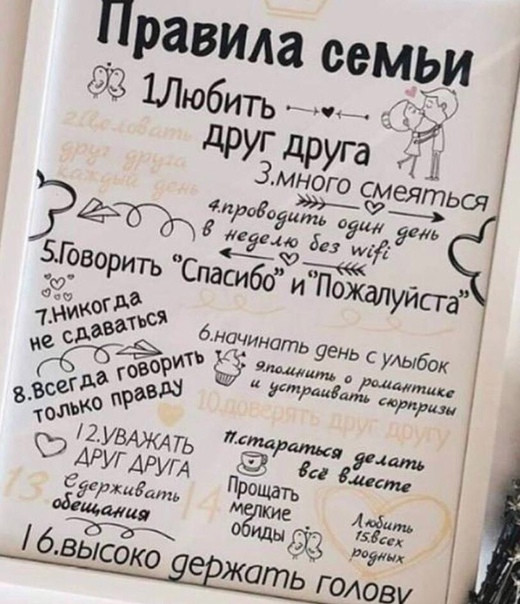 Правила семьи
1Любить
друг друга
2Целовать
друг друга
каждый день
3.много смеяться
4.проводить один день
в неделю без wifi
5.Говорить "Спасибо" и "Пожалуйста"
7.Никогда
не сдаваться
6.начинать день с улыбок
8.Всегда говорить
только правду
9.помнить о романтике
и устраивать сюрпризы
10.доверять друг другу
12.УВАЖАТЬ
ДРУГ ДРУГА
11.стараться делать
всё вместе
13.
Сдерживать
обещания
14
Прощать
мелкие
обиды
Любить
15.всех
родных
16.высоко держать голову